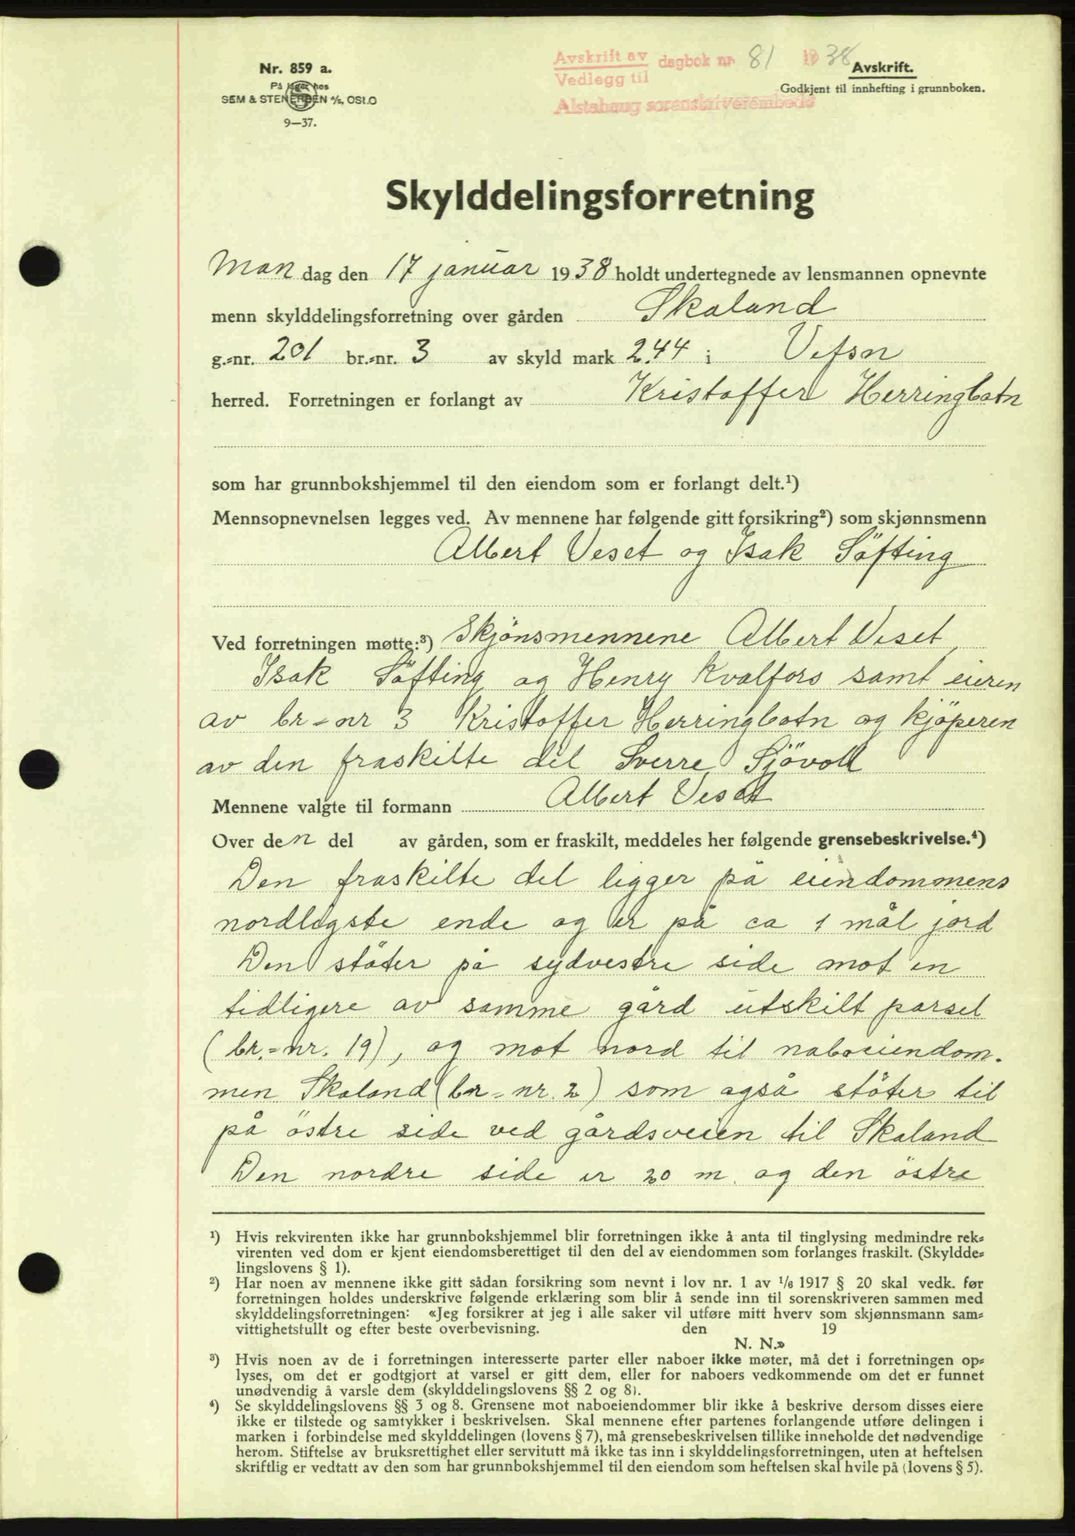 Nr. 859 a.
På lager hos
SEM & STENERSEN A/S, OSLO
9—37.
Avskrift av dagbok nr 81 1938
Vedlegg til
Alstahaug sorenskriverembede
Avskrift.
Godkjent til innhefting i grunnboken.
Skylddelingsforretning
Man dag den 17 januar 1938 holdt undertegnede av lensmannen opnevnte
menn skylddelingsforretning over gården Skaland
g.-nr. 201 br.-nr. 3 av skyld mark 2.44 i Vefsn
herred. Forretningen er forlangt av Kristoffer Herringbotn
som har grunnbokshjemmel til den eiendom som er forlangt delt.¹)
Mennsopnevnelsen legges ved. Av mennene har følgende gitt forsikring²) som skjønnsmenn
Albert Veset og Isak Söfting
Ved forretningen møtte:³) Skjönsmennene Albert Veset,
Isak Söfting og Henry Kvalfors samt eieren
av br-nr 3 Kristoffer Herringbotn og kjöperen
av den fraskilte del Sverre Sjövoll
Mennene valgte til formann Albert Veset
Over den del av gården, som er fraskilt, meddeles her følgende grensebeskrivelse.⁴)
Den fraskilte del ligger på eiendommens
nordligste ende og er på ca 1 mål jord
Den stöter på sydvestre side mot en
tidligere av samme gård utskilt parsel
(br.-nr. 19), og mot nord til naboeiendom-
men Skaland (br-nr. 2) som også stöter til
på östre side ved gårdsveien til Skaland
Den nordre side er 20 m. og den östre
¹) Hvis rekvirenten ikke har grunnbokshjemmel blir forretningen ikke å anta til tinglysing medmindre rek-
virenten ved dom er kjent eiendomsberettiget til den del av eiendommen som forlanges fraskilt. (Skyldde-
lingslovens § 1).
²) Har noen av mennene ikke gitt sådan forsikring som nevnt i lov nr. 1 av 1/6 1917 § 20 skal vedk. før
forretningen holdes underskrive følgende erklæring som blir å sende inn til sorenskriveren sammen med
skylddelingsforretningen: «Jeg forsikrer at jeg i alle saker vil utføre mitt hverv som skjønnsmann sam-
vittighetsfullt og efter beste overbevisning. den 19
N. N.»
³) Hvis noen av de i forretningen interesserte parter eller naboer ikke møter, må det i forretningen op-
lyses, om det er godtgjort at varsel er gitt dem, eller for naboers vedkommende om det er funnet
unødvendig å varsle dem (skylddelingslovens §§ 2 og 8).
⁴) Se skylddelingslovens §§ 3 og 8. Grensene mot naboeiendommer blir ikke å beskrive dersom disses eiere
ikke er tilstede og samtykker i beskrivelsen. Skal mennene efter partenes forlangende utføre delingen i
marken i forbindelse med skylddelingen (lovens § 7), må grensebeskrivelsen tillike inneholde det nødvendige
herom. Stiftelse av bruksrettighet eller servitutt må ikke tas inn i skylddelingsforretningen, uten at heftelsen
skriftlig er vedtatt av den som har grunnbokshjemmel til den eiendom som heftelsen skal hvile på (lovens § 5).